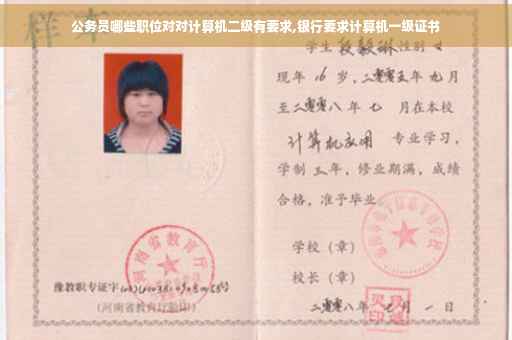 公务员哪些职位对对计算机二级有要求,银行要求计算机一级证书
样本
学生 段毅琳 性别 女
现年 16 岁，二零零五年 九月
至二零零八年 七 月在本校
计算机应用 专业学习，
学制 三 年，修业期满，成绩
合格，准予毕业
学校（章）
校长（章）
河南省教育厅
豫教职专证字
（河南省教育厅验印）
二零零八年 七 月 一 日